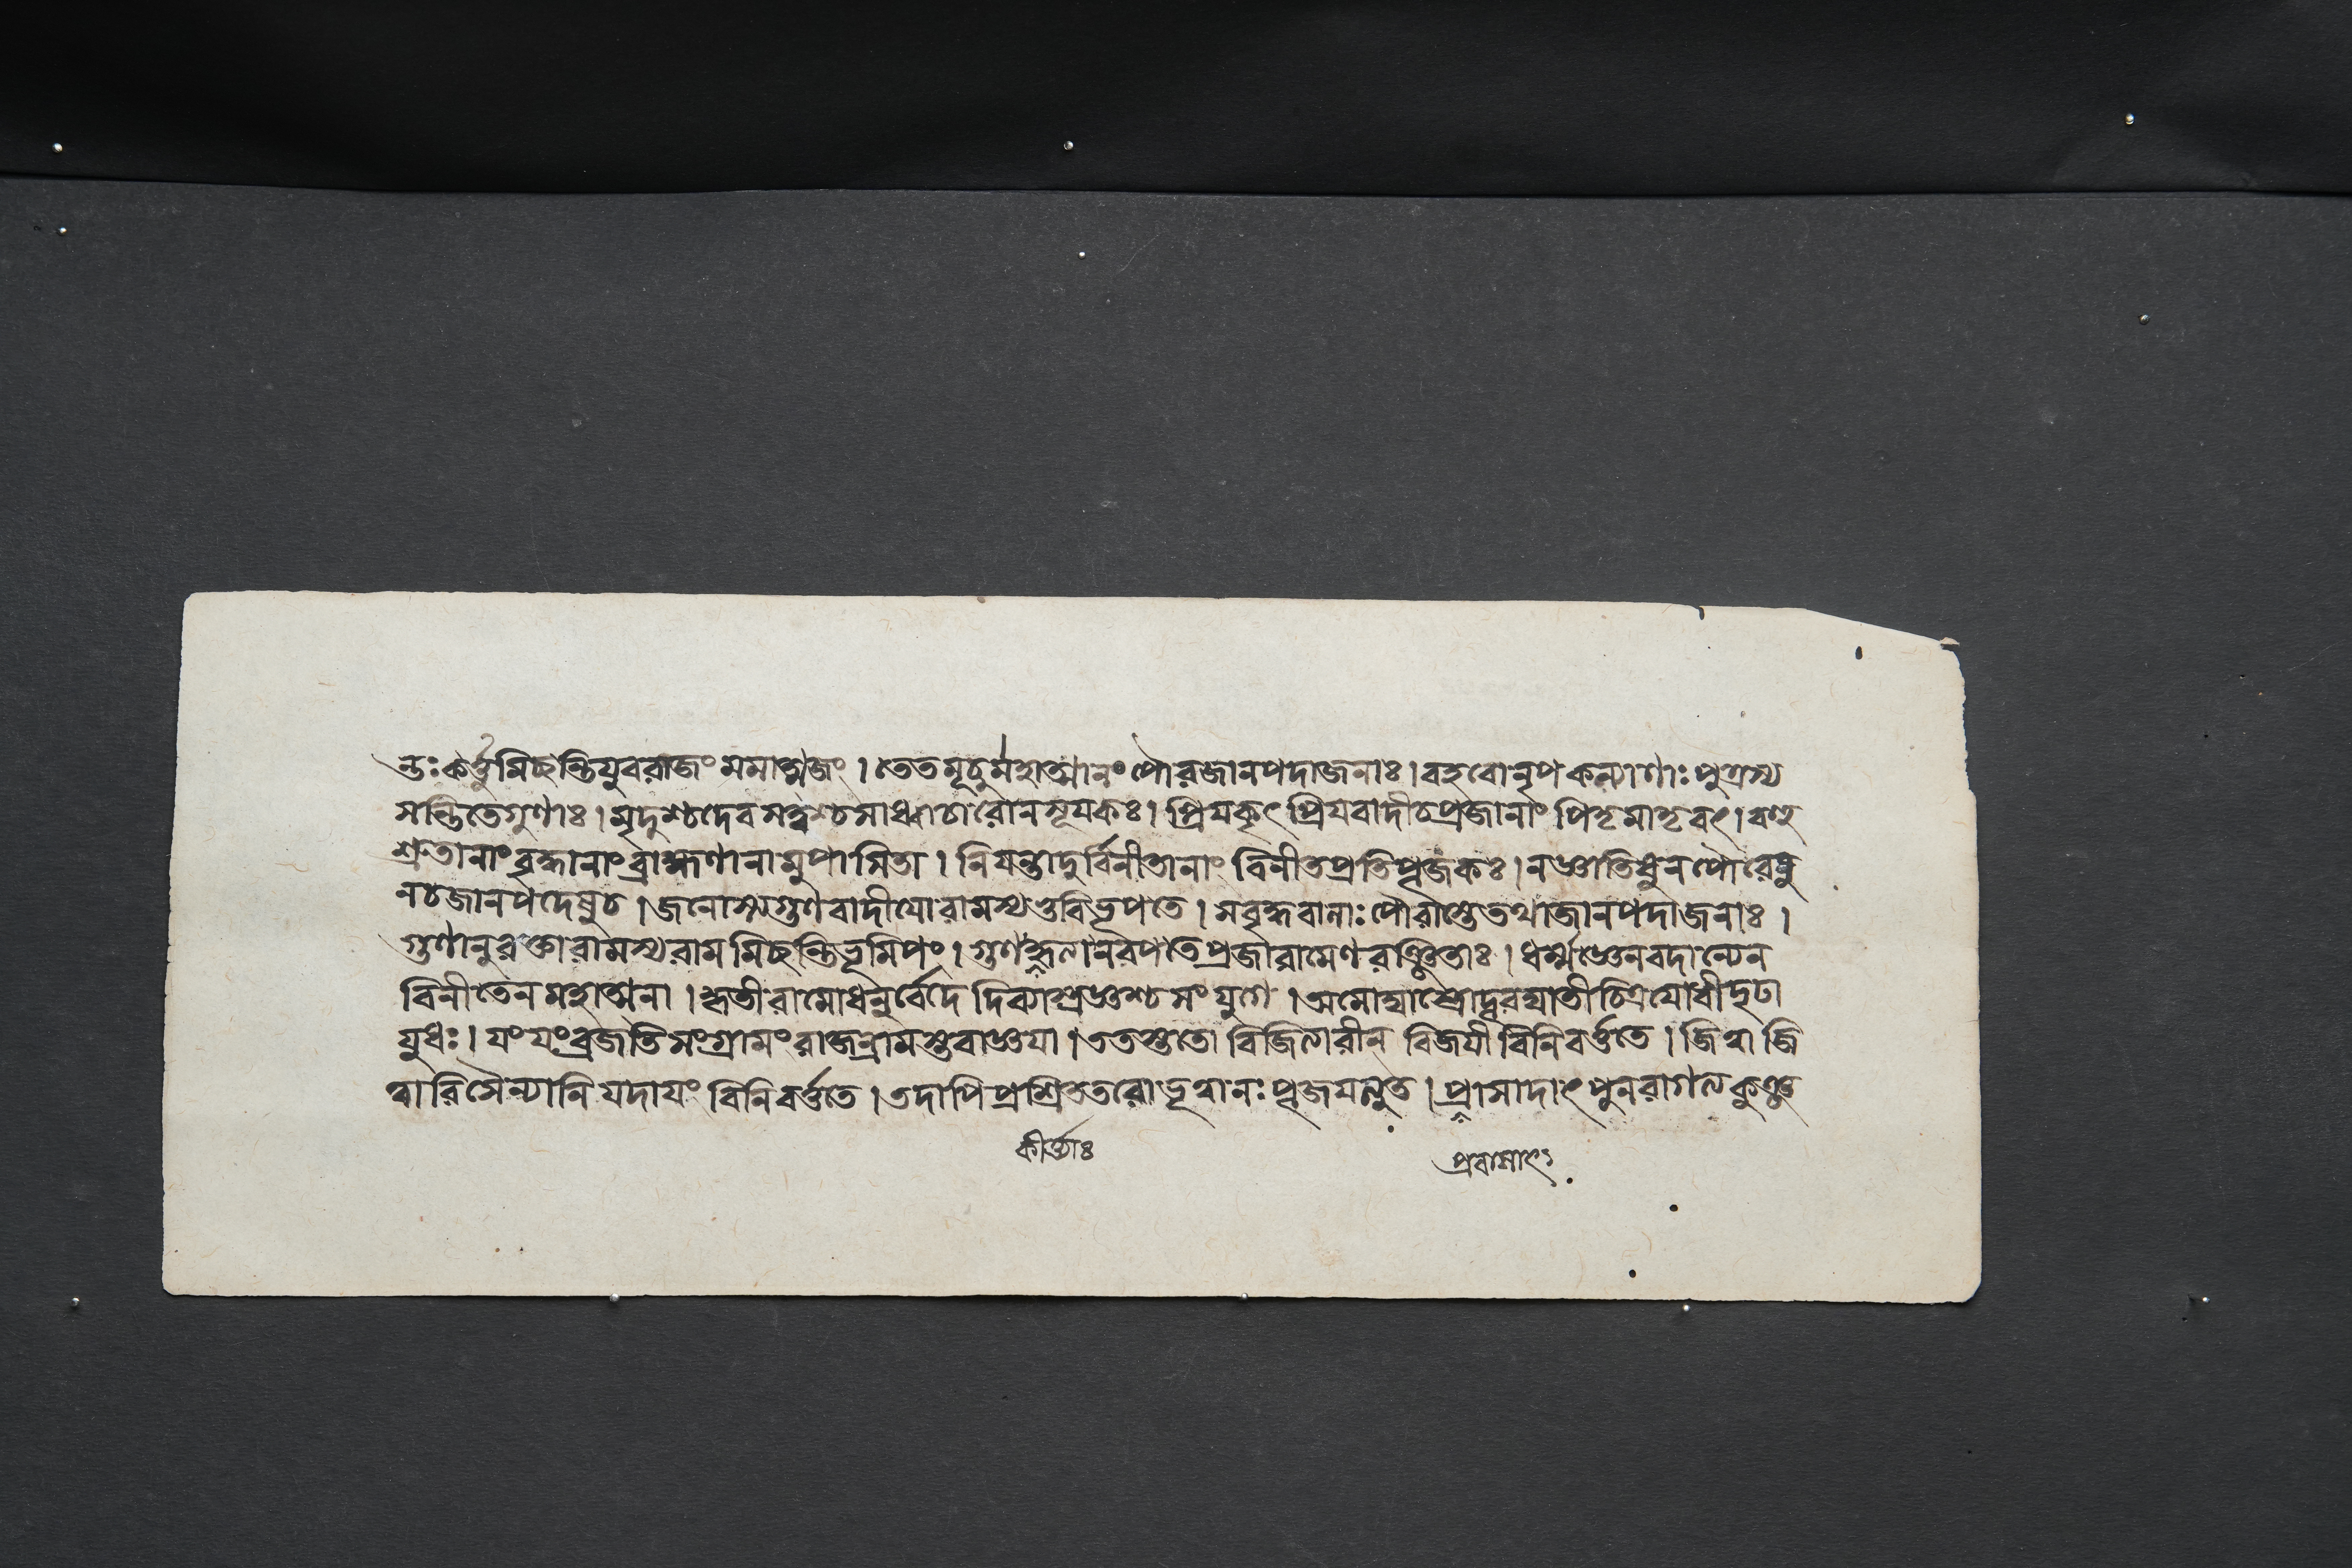 ন্তঃকর্ত্তুমিচ্ছন্তিযুবরাজং মমাত্মজং । তেতমূচুর্মহাত্মানং পৌরজানপদাজনাঃ । বহবোনৃপ কল্যাণাঃ পুত্রস্য
সন্তিতেগুণাঃ । মৃদুশ্চদেবসত্ত্বশ্চসাধ্বাচারোনসূযকঃ । প্রিযকৃৎ প্রিযবাদীচপ্রজানাং পিতৃমাতৃবৎ । বহু
শ্রুতানাংবৃদ্ধানাংব্রাহ্মণানামুপাসিতা । নিযন্তাদুর্বিনীতানাং বিনীতপ্রতিপূজকঃ । নজ্ঞাতিষুনপৌরেষু
নচজানপদেষুচ । জনোস্যগুণবাদীযোরামস্যভুবিভূপতে । সবৃদ্ধবালাঃ পৌরাস্তেতথাজানপদাজনাঃ ।
গুণানুরক্তোরামস্যরামমিচ্ছন্তিভূমিপং । গুণ নরপতেপ্রজারামেণরঞ্জিতাঃ । ধর্ম্মজ্ঞেনবদান্যেন
বিনীতেনমহাত্মনা । কৃতীরামোধনুর্বেদে দিব্যাস্ত্রজ্ঞশ্চ সংযুগে । অমোঘাস্ত্রোদূরঘাতীচিত্রযোধীদৃঢা
যুধঃ । যং যংব্রজতিসংগ্রামং রাজন্রামস্তবাজ্ঞযা । ততস্ততো বিজিত্যারীন্ বিজযী বিনিবর্ত্ততে । জিত্বাজি
ত্বারিসৈন্যানি যদাযং বিনিবর্ত্ততে । তদাপি প্রশ্রিততরোভূত্বানঃ পূজযত্যুত । প্রাসাদাৎ পুনরাগত্যকুঞ্জ
কীর্ত্ত্যাঃ
প্রবাসাৎ